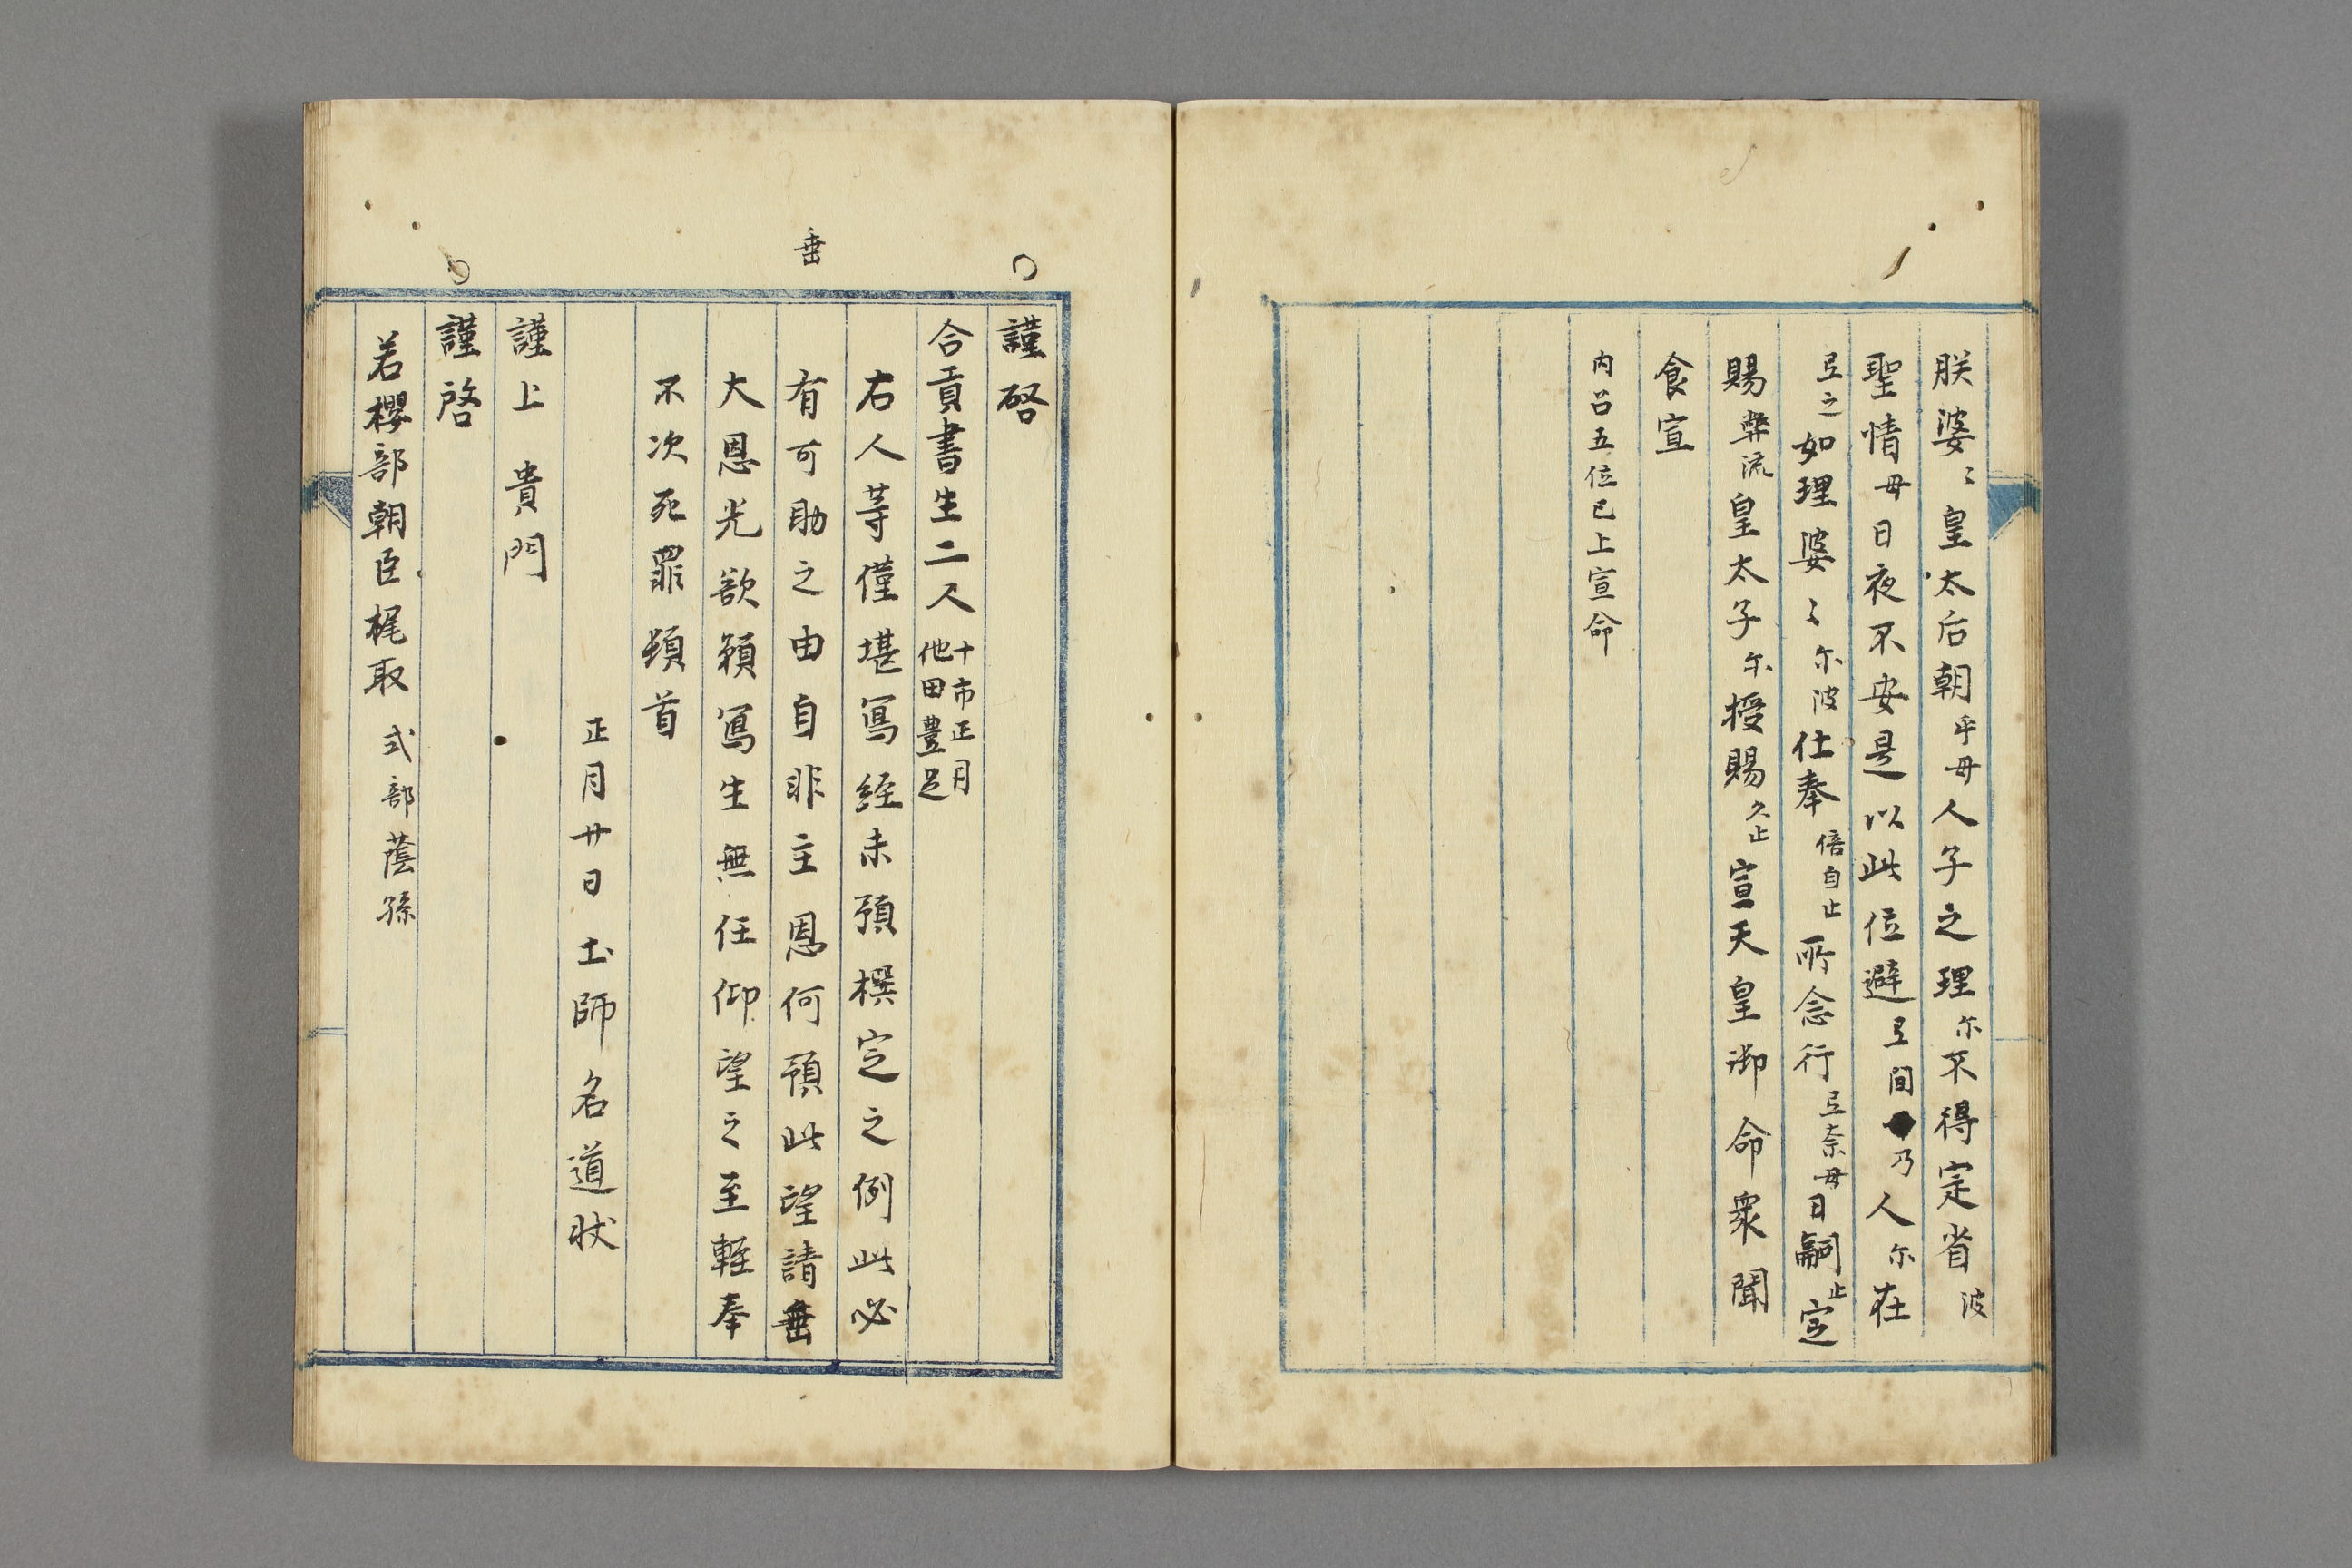 朕婆〻皇太后朝乎毋人子之理尓不得定省波
聖情毋日夜不安是以此位避弖間乃人尓在
弖之如理婆〻尓波仕奉倍自止所念行弖奈毋日嗣止定
賜弊流皇太子尓授賜久止宣天皇御命衆聞
食宣
内召五位已上宣命
謹啓
合貢書生二人 十市正月
他田豊足
右人等僅堪寫経未預撰定之例此必
有可助之由自非主恩何預此望請垂
垂
大恩光欲頼寫生無任仰望之至軽奉
不次死罪頓首
正月廿日土師名道状
謹上 貴門
謹啓
若櫻部朝臣梶取 式部蔭孫